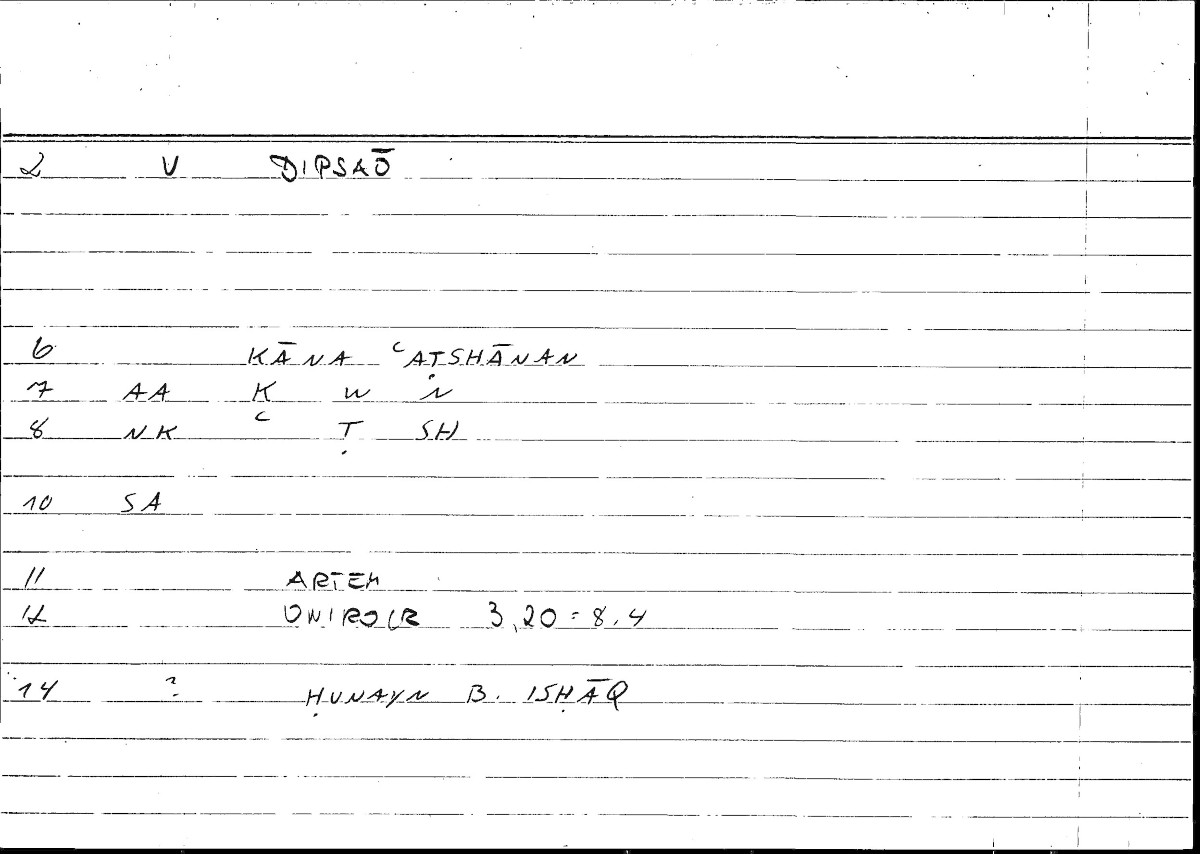 2 V DIPSAŌ
6 KĀNA ʿAṬSHĀNAN
7 AA K W N
8 NK ʿ Ṭ SH
10 SA
11 ARTEM
12 ONIROCR 3,20 = 8.4
14 ? ḤUNAYN B. ISḤĀQ